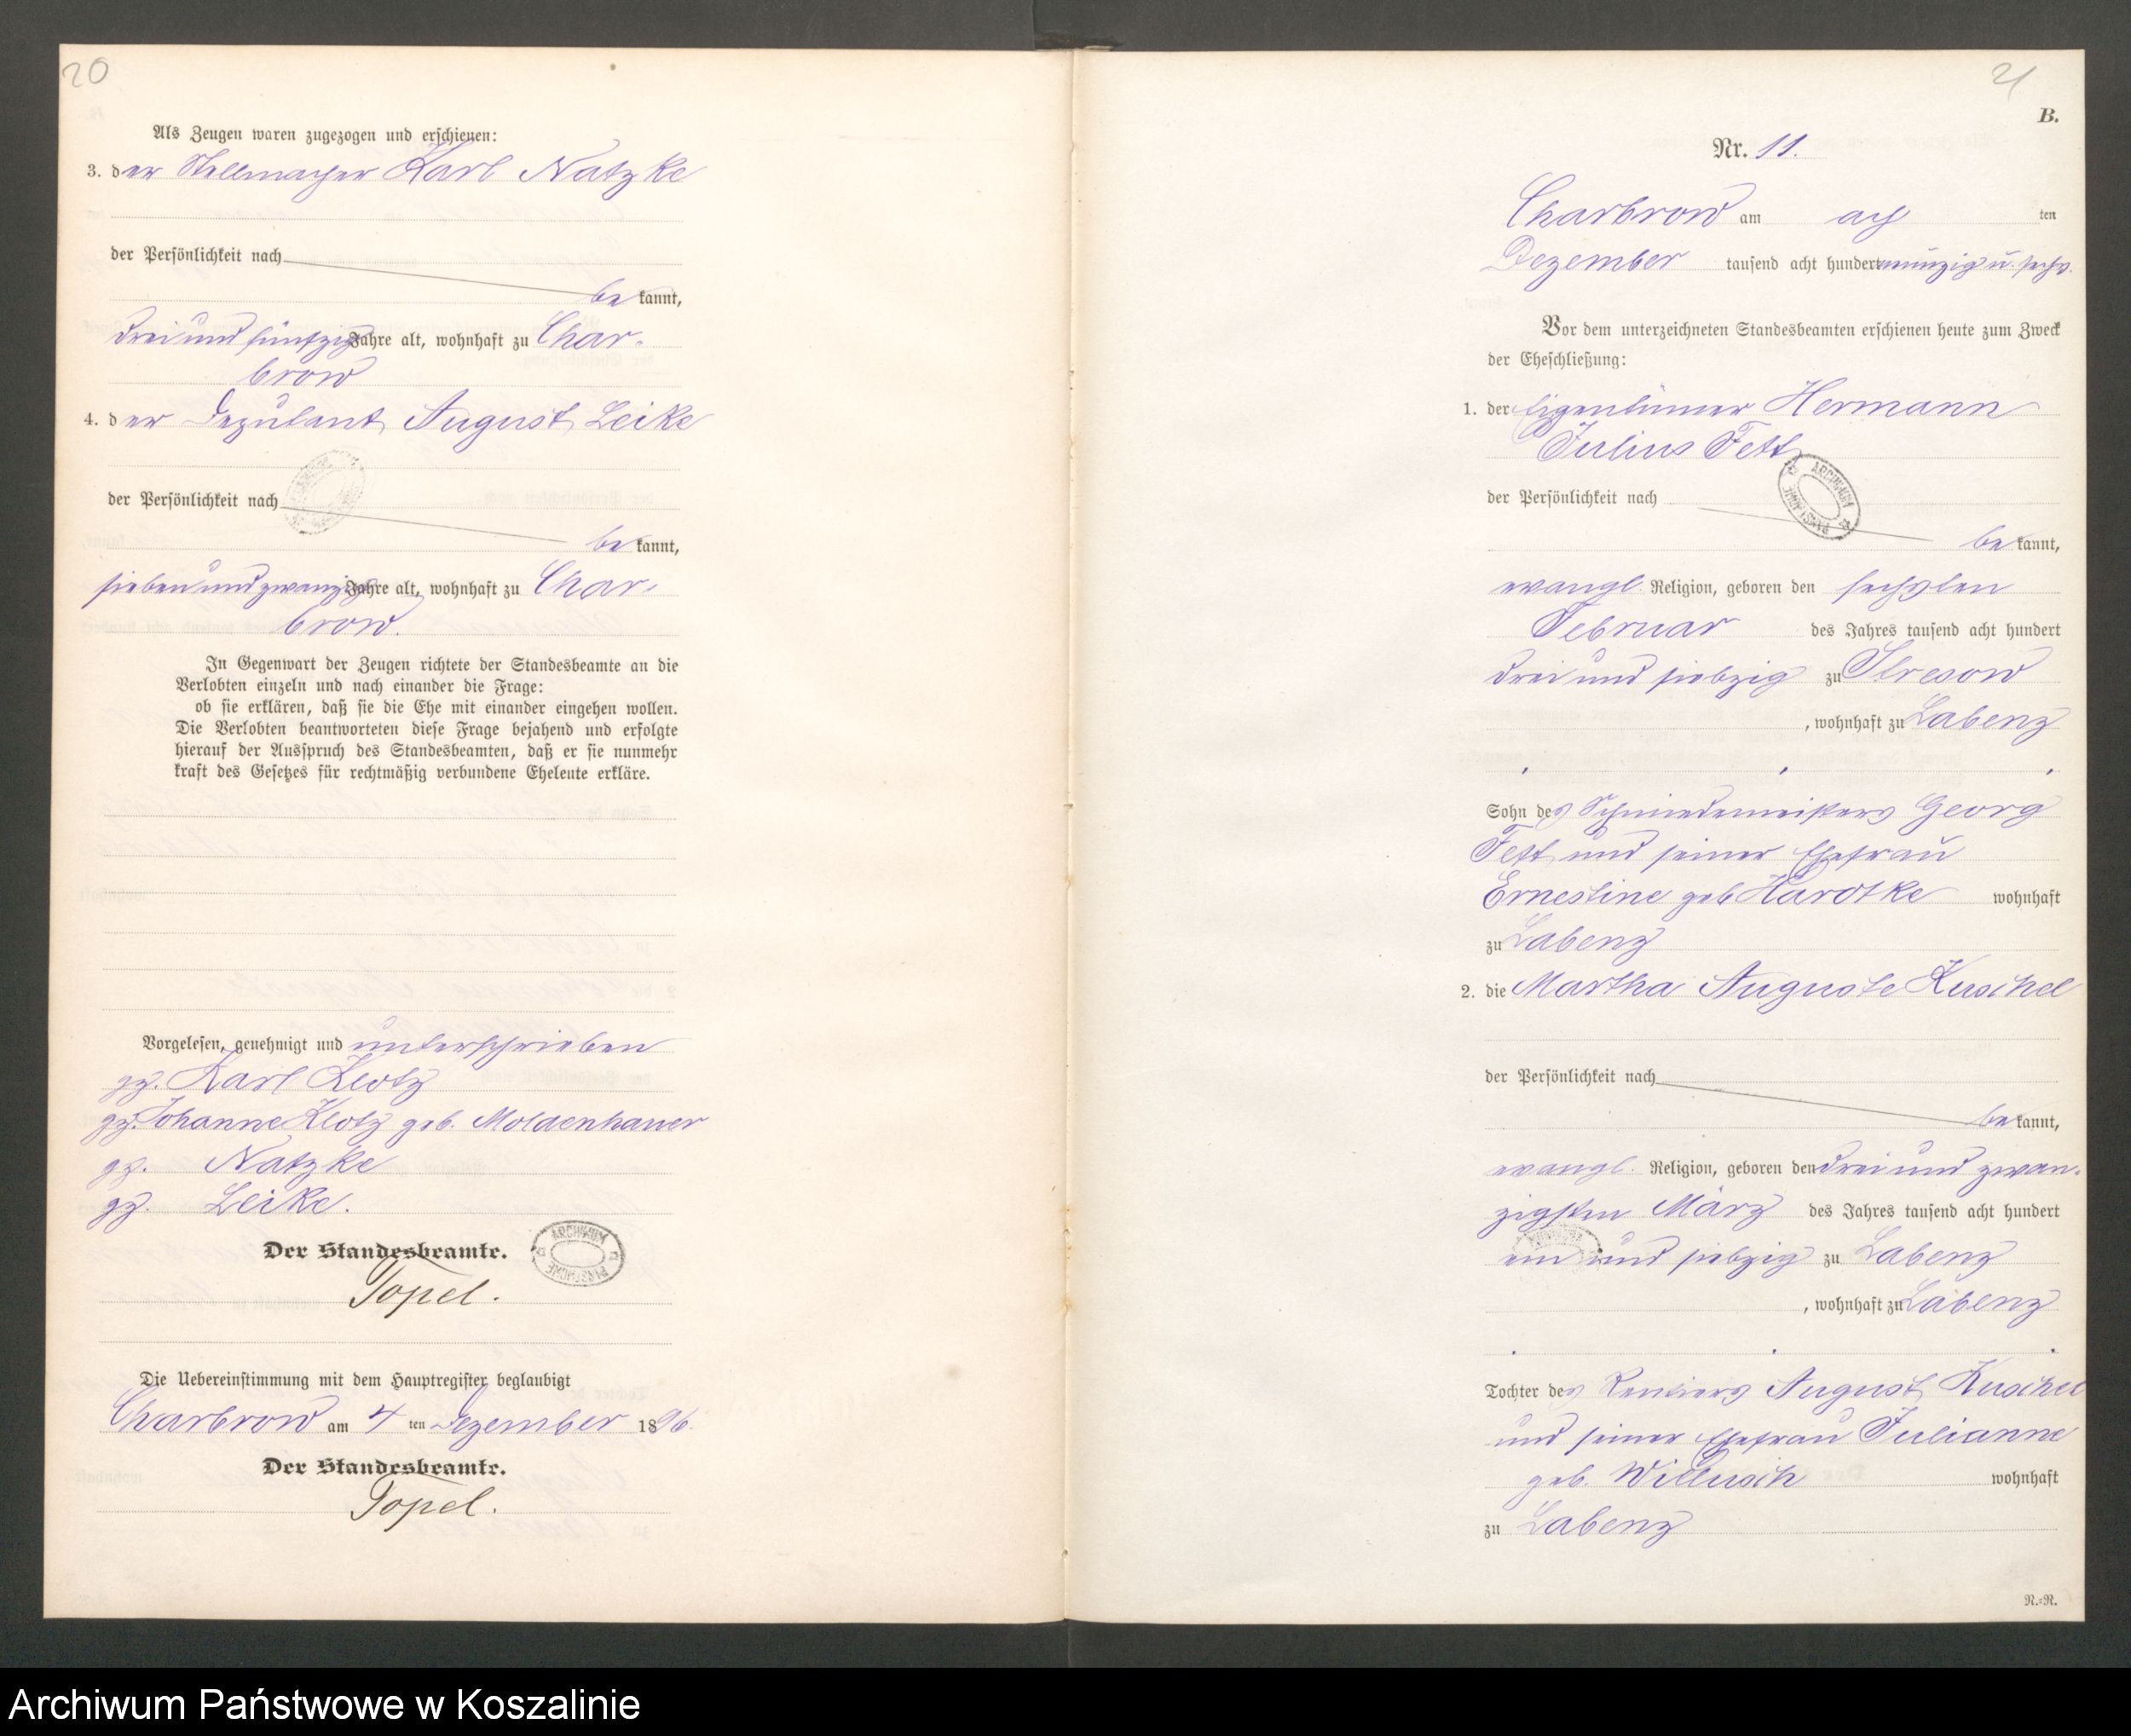 20
Als Zeugen waren zugezogen und erschienen:
3. der Stellmacher Karl Natzke
der Persönlichkeit nach
be kannt,
drei und fünfzig Jahre alt, wohnhaft zu Char-
brow
4. der Deputant August Leike
der Persönlichkeit nach
be kannt,
sieben und zwanzig Jahre alt, wohnhaft zu Char-
brow.
In Gegenwart der Zeugen richtete der Standesbeamte an die
Verlobten einzeln und nach einander die Frage:
ob sie erklären, daß sie die Ehe mit einander eingehen wollen.
Die Verlobten beantworteten diese Frage bejahend und erfolgte
hierauf der Ausspruch des Standesbeamten, daß er sie nunmehr
kraft des Gesetzes für rechtmäßig verbundene Eheleute erkläre.
Vorgelesen, genehmigt und unterschrieben
gz. Karl Klotz
gz. Johanne Klotz geb. Moldenhauer
gz. Natzke
gz. Leike.
Der Standesbeamte.
Topel.
Die Uebereinstimmung mit dem Hauptregister beglaubigt
Charbrow am 4 ten Dezember 1896.
Der Standesbeamte.
Topel.
21
B.
Nr. 11.
Charbrow am ach ten
Dezember tausend acht hundert neunzig u. sechs.
Vor dem unterzeichneten Standesbeamten erschienen heute zum Zweck
der Eheschließung:
1. der Eigentümer Hermann
Julius Fett
der Persönlichkeit nach
be kannt,
evangl. Religion, geboren den sechsten
Februar des Jahres tausend acht hundert
drei und siebzig zu Stresow
, wohnhaft zu Labenz
Sohn des Schmiedemeisters Georg
Fett und seiner Ehefrau
Ernestine geb Hardtke wohnhaft
zu Labenz
2. die Martha Auguste Kuschel
der Persönlichkeit nach
be kannt,
evangl. Religion, geboren den drei und zwan-
zigsten März des Jahres tausend acht hundert
ein und siebzig zu Labenz
, wohnhaft zu Labenz
Tochter des Rentiers August Kuschel
und seiner Ehefrau Julianne
geb. Willusch wohnhaft
zu Labenz
R.=R.
Archiwum Państwowe w Koszalinie